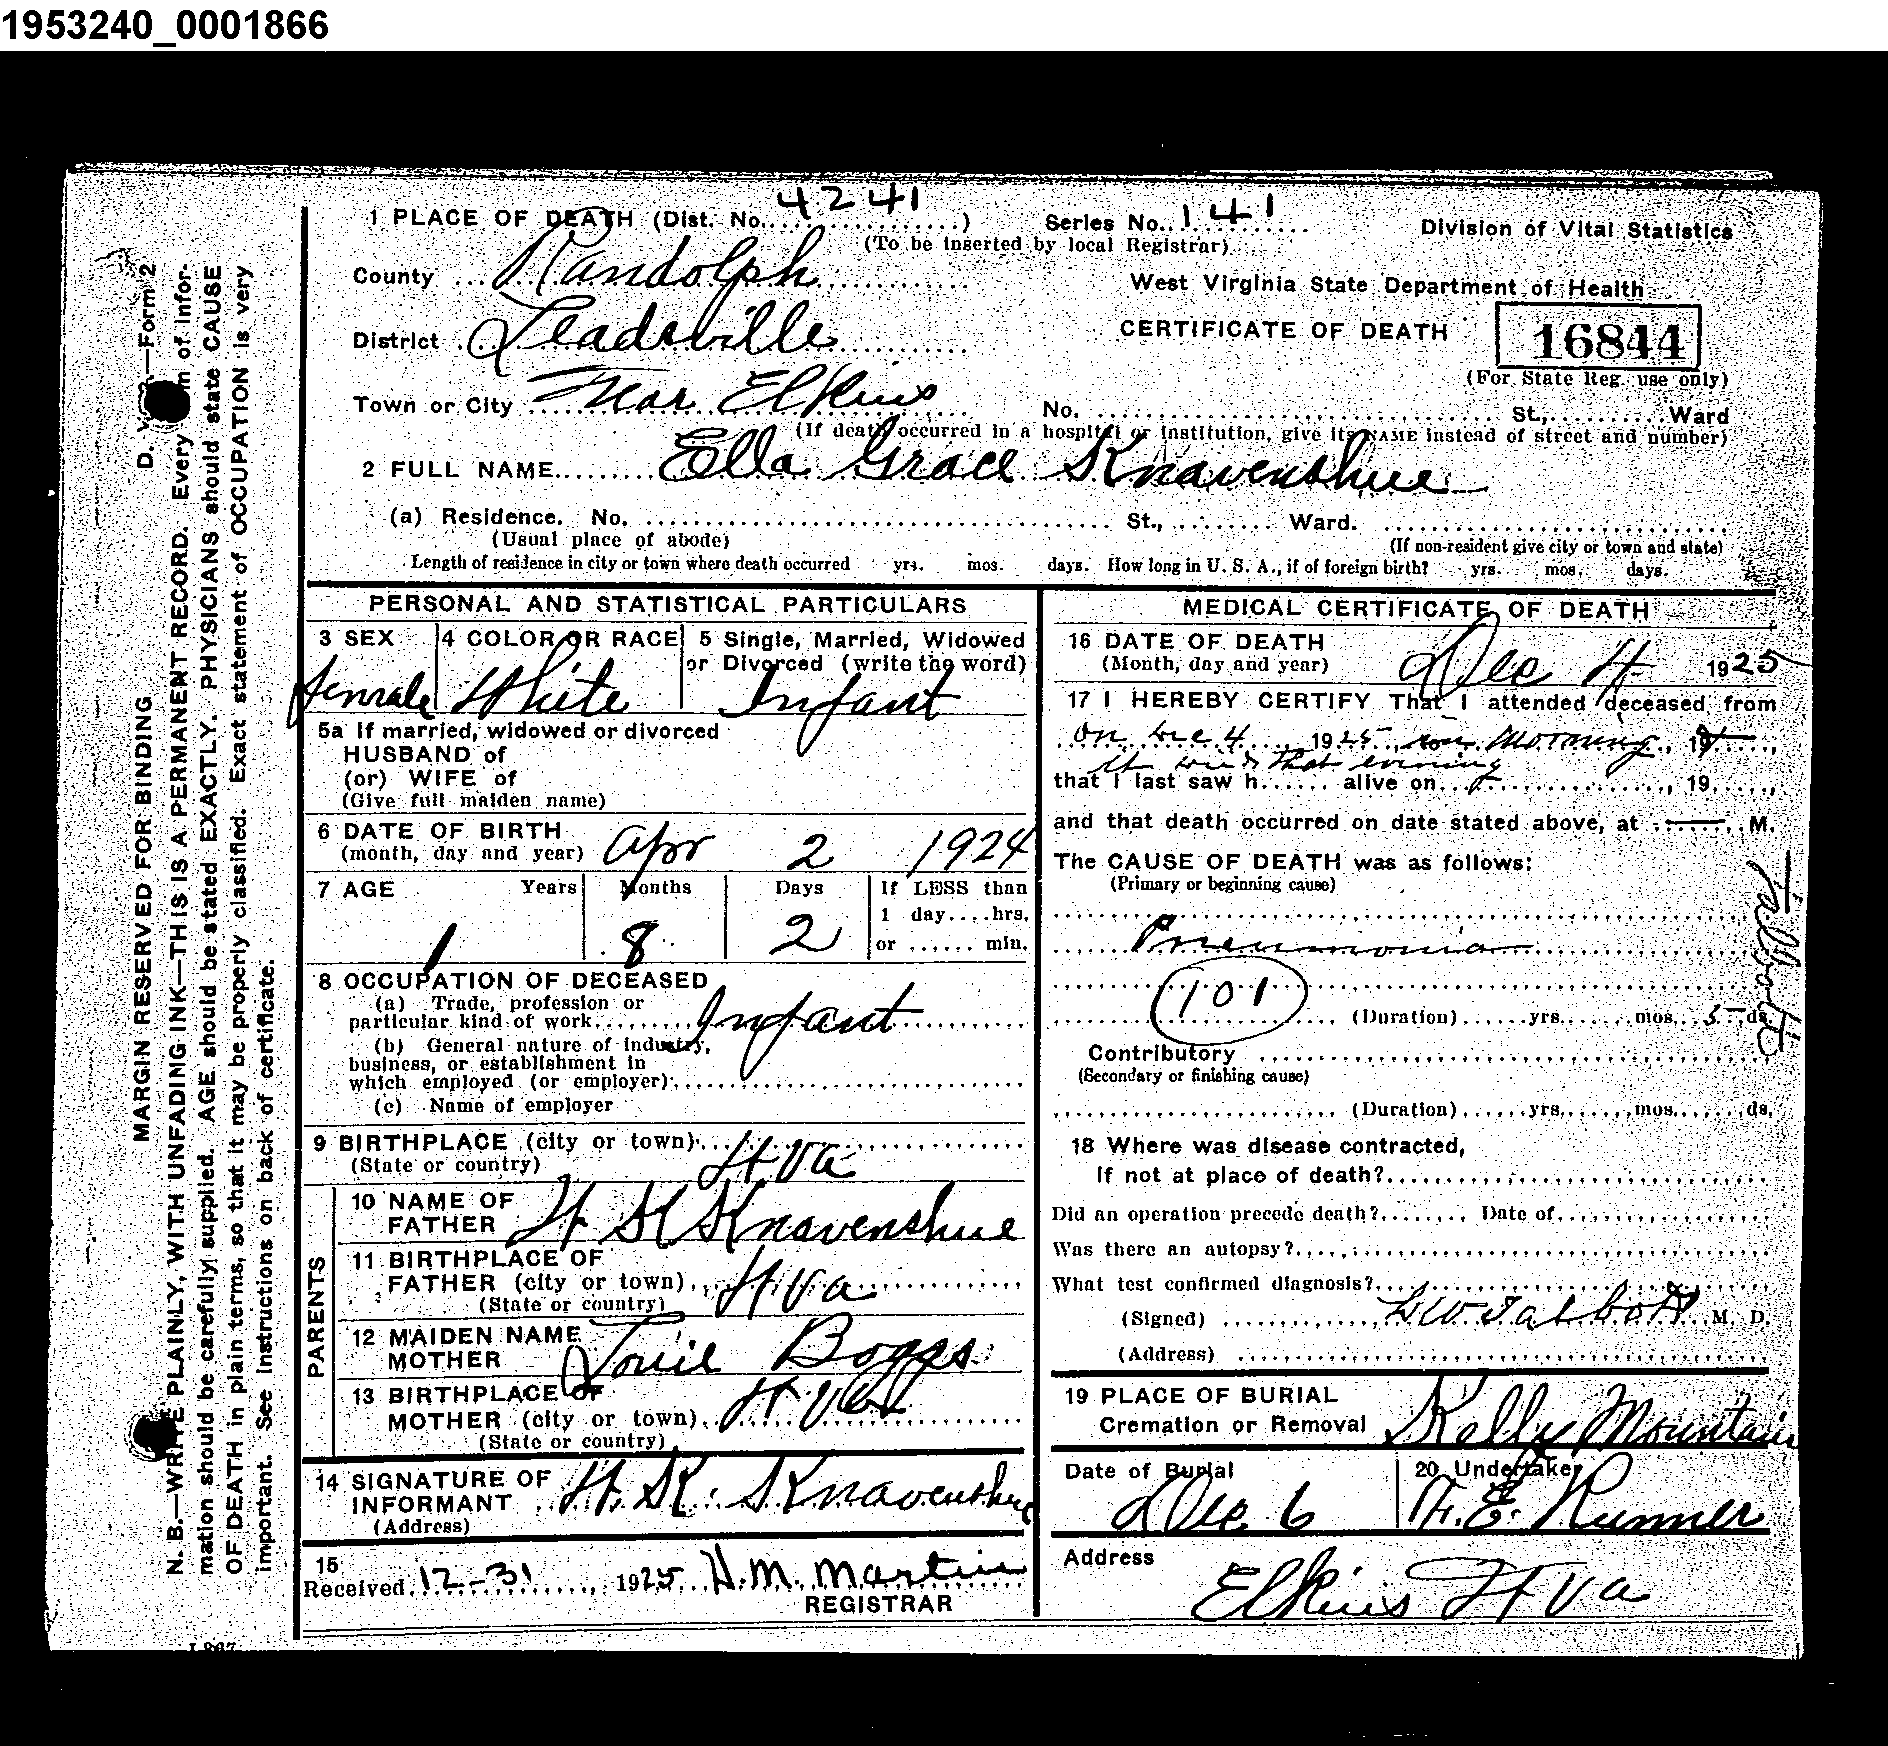 1953240_0001866
1 PLACE OF DEATH (Dist. No. 4241)
Series No. 141
(To be inserted by local Registrar)
Division of Vital Statistics
County Randolph
West Virginia State Department of Health
District Leadsville
CERTIFICATE OF DEATH
16844
(For State Reg. use only)
Town or City Near Elkins
No. St., Ward
(If death occurred in a hospital or institution, give its NAME instead of street and number)
2 FULL NAME Ella Grace Knavenshue
(a) Residence. No. St., Ward.
(Usual place of abode)
(If non-resident give city or town and state)
Length of residence in city or town where death occurred yrs. mos. days. How long in U. S. A., if of foreign birth? yrs. mos. days.
PERSONAL AND STATISTICAL PARTICULARS
3 SEX
female
4 COLOR OR RACE
White
5 Single, Married, Widowed
or Divorced (write the word)
Infant
5a If married, widowed or divorced
HUSBAND of
(or) WIFE of
(Give full maiden name)
6 DATE OF BIRTH
(month, day and year) Apr 2 1924
7 AGE Years Months Days If LESS than
1 day....hrs.
1 8 2 or ...... min.
8 OCCUPATION OF DECEASED
(a) Trade, profession or
particular kind of work Infant
(b) General nature of industry,
business, or establishment in
which employed (or employer)
(c) Name of employer
9 BIRTHPLACE (city or town)
(State or country) W Va
PARENTS
10 NAME OF
FATHER W K Knavenshue
11 BIRTHPLACE OF
FATHER (city or town) W Va
(State or country)
12 MAIDEN NAME
MOTHER Boggs
13 BIRTHPLACE OF
MOTHER (city or town) W Va
(State or country)
14 SIGNATURE OF
INFORMANT W. K. Knavenshue
(Address)
15
Received 12-31, 1925 H. M. Martin
REGISTRAR
MEDICAL CERTIFICATE OF DEATH
16 DATE OF DEATH
(Month, day and year) Dec 4 1925
17 I HEREBY CERTIFY That I attended deceased from
on Dec 4 1925, to in Morning, 19
It died that evening
that I last saw h...... alive on, 19
and that death occurred on date stated above, at M.
The CAUSE OF DEATH was as follows:
(Primary or beginning cause)
Pneumonia
101
(Duration) yrs. mos. 5 ds.
Talbott
Contributory
(Secondary or finishing cause)
(Duration) yrs. mos. ds.
18 Where was disease contracted,
If not at place of death?
Did an operation precede death? Date of
Was there an autopsy?
What test confirmed diagnosis?
(Signed) L W Talbott M. D.
(Address)
19 PLACE OF BURIAL
Cremation or Removal Kelly Mountain
Date of Burial
Dec 6
20 Undertaker
W. E. Runner
Address
Elkins W Va
D. —Form 2
MARGIN RESERVED FOR BINDING
N. B.—WRITE PLAINLY, WITH UNFADING INK—THIS IS A PERMANENT RECORD. Every item of infor-
mation should be carefully supplied. AGE should be stated EXACTLY. PHYSICIANS should state CAUSE
OF DEATH in plain terms, so that it may be properly classified. Exact statement of OCCUPATION is very
important. See instructions on back of certificate.